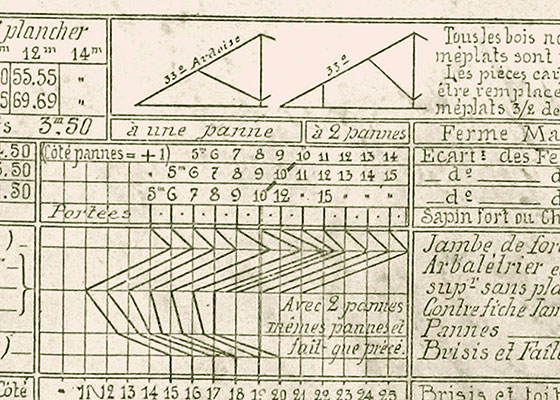 plancher
12ᵐ 14ᵐ
55.55 "
69.69 "
3ᵐ.50
33° Ardoise
33°
Tous les bois
méplats sont
Les pièces
être
méplats 3/2 de
à une panne
à 2 pannes
Ferme
.50
.50
.50
(Côté pannes = + 1) 5ᵐ 6 7 8 9 10 11 12 13 14
5ᵐ 6 7 8 9 10 11 12 13 14 15
5ᵐ 6 7 8 9 10 12 . 15 " " "
Portées
Ecart: des
d°
d°
Sapin fort ou
Jambe de
Arbalétrier
supᵗ sans
Contrefiche
Pannes
Brisis et
Avec 2 pannes
mêmes pannes et
fait que précé.
Côté
12 13 14 15 16 17 18 19 20 21 22 23 24 25
Brisis et